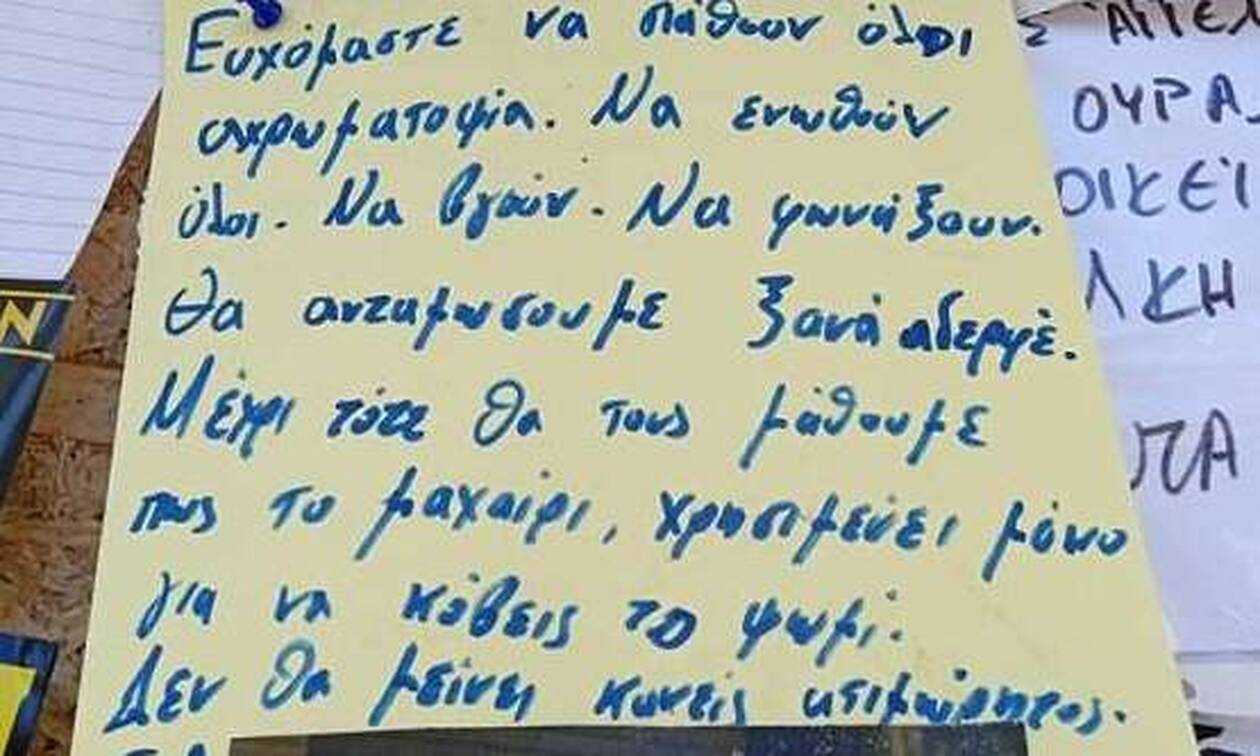 Ευχόμαστε να πάθουν όλοι
αχρωματοψία. Να ενωθούν
όλοι. Να βγούν. Να φωνάξουν.
Θα ανταμώσουμε ξανά αδερφέ.
Μέχρι τότε θα τους μάθουμε
πως το μαχαίρι, χρησιμεύει μόνο
για να κόβεις το ψωμί.
Δεν θα μείνει κανείς ατιμώρητος.
Σ ΑΓΓΕΛ
ΟΥΡΑ
ΟΙΚΕΙ
ΛΚΗ
ΠΑ
Ν